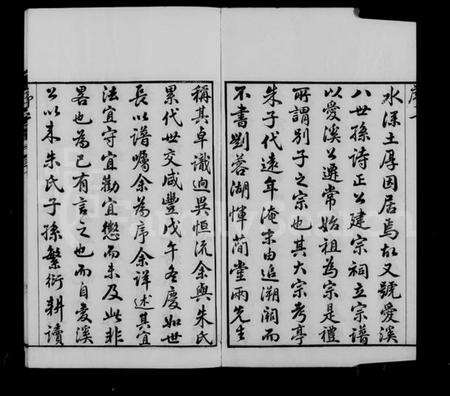 水深土厚因居焉故又號愛溪
八世孫詩正公建宗祠立宗譜
以愛溪公遷常始祖為宗是禮
所謂別子之宗也其大宗考亭
朱子代遠年淹末由追溯闕而
不書劉蓉湖惲簡堂兩先生
稱其卓識迥異恒流余與朱氏
累代世交咸豐戊午冬慶如世
長以譜囑余為序余詳述其宜
法宜守宜勸宜懲而未及此非
畧也為已有言之也而自愛溪
公以来朱氏子孫繁衍耕讀